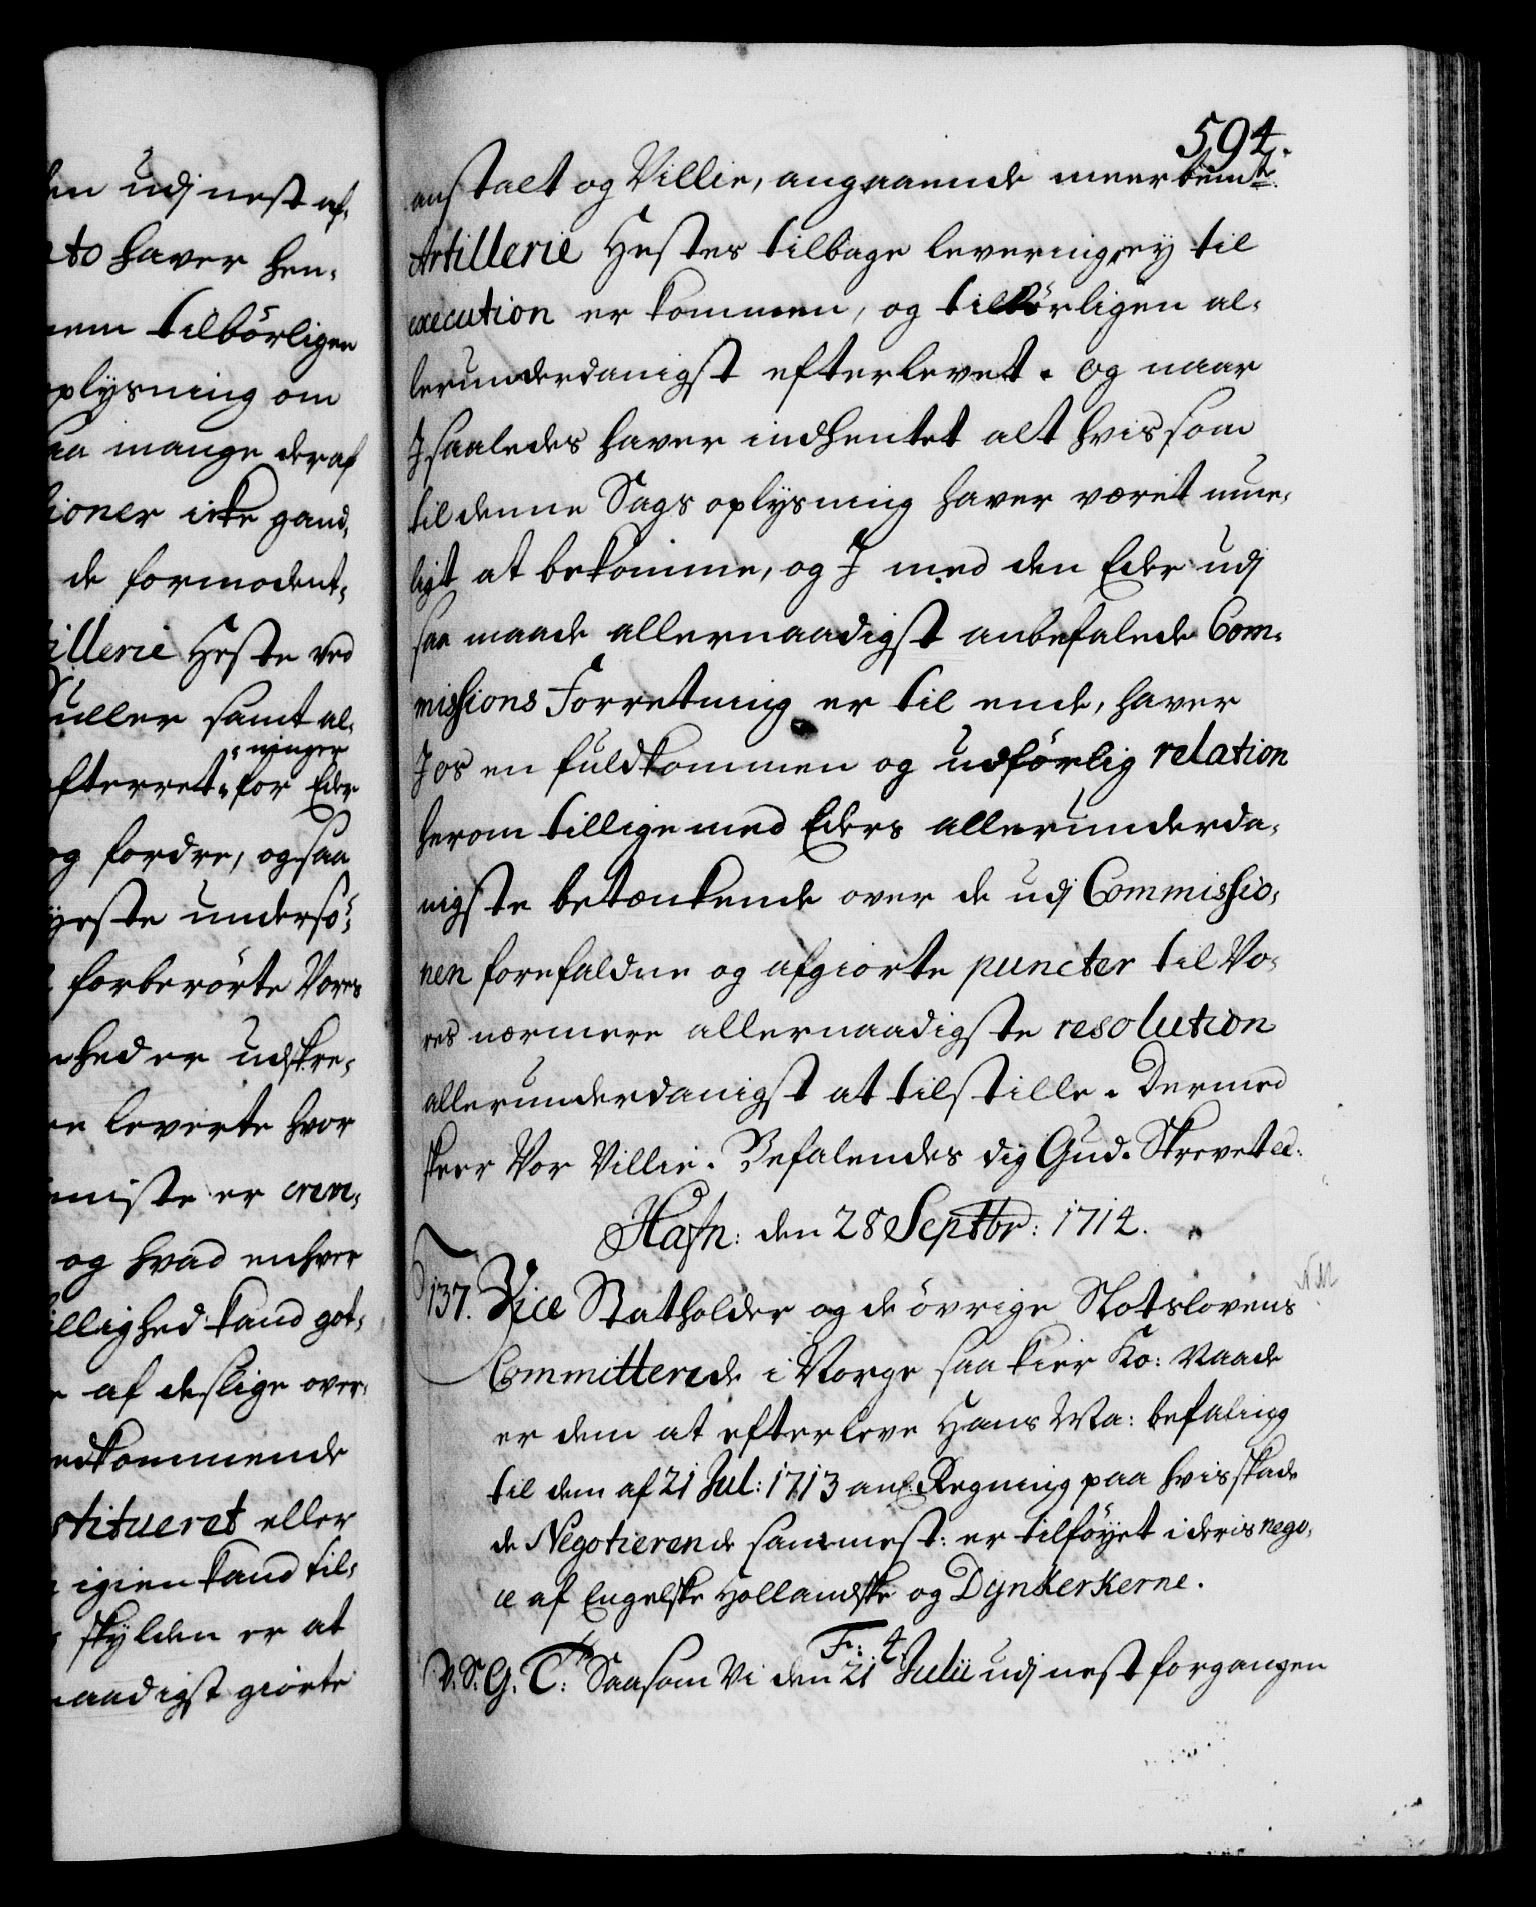 en udj nest af,
to haver hen,
nem tilbörligen
plysning om
aa mange deraf
ioner icke gand,
de formodent,
illerie Heste ved
uller samt al,
ninger
fterret, for Eder
og fordre, og saa
yeste undersö,
forberörte Vores
hed er udskre,
en leverte hvor
miste er crem,
og hvad enhver
illighed kand got,
af deslige over,
edkommende
stitueret eller
igien kand til,
skylden er at
aadigst giorte
594.
anstalt og Villie, angaaende meerbemte
Artillerie Hestes tilbage levering, ey til
execution er kommen, og tilbörligen al,
lerunderdanigst efterlevet. og naar
I saaledes haver indhentet alt hvis som
til denne Sags oplysning haver været mue,
ligt at bekomme, og I med den Eder udj
saa maade allernaadigst anbefalede Com,
missions Forretning er til ende, haver
I os en fuldkommen og udförlig relation
herom tillige med Eders allerunderda,
nigste betænkende over de udj Commissio,
nen forefaldne og afgiorte puncter til Vo,
res nærmere allernaadigste resolution
allerunderdanigst at tilstille. Dermed
skeer Vor Villie. Befalendes dig Gud. Skrevet etc.
Hafn: den 28 Septbr: 1714.
N.M
137. Vice Statholder og de övrige Slotslovens
Committerede i Norge saa kier Ko: Naade
er dem at efterleve Hans Ma: befaling
til dem af 21 Jul: 1713 anl. Regning paa hvis skade
de Negotierende sammest: er tilföyet i deris nego,
ce af Engelske Hollandske og Dynkerkerne.
F: 4.
V. S. G. T: Saasom Vi den 21 Julii udj nest forgangen